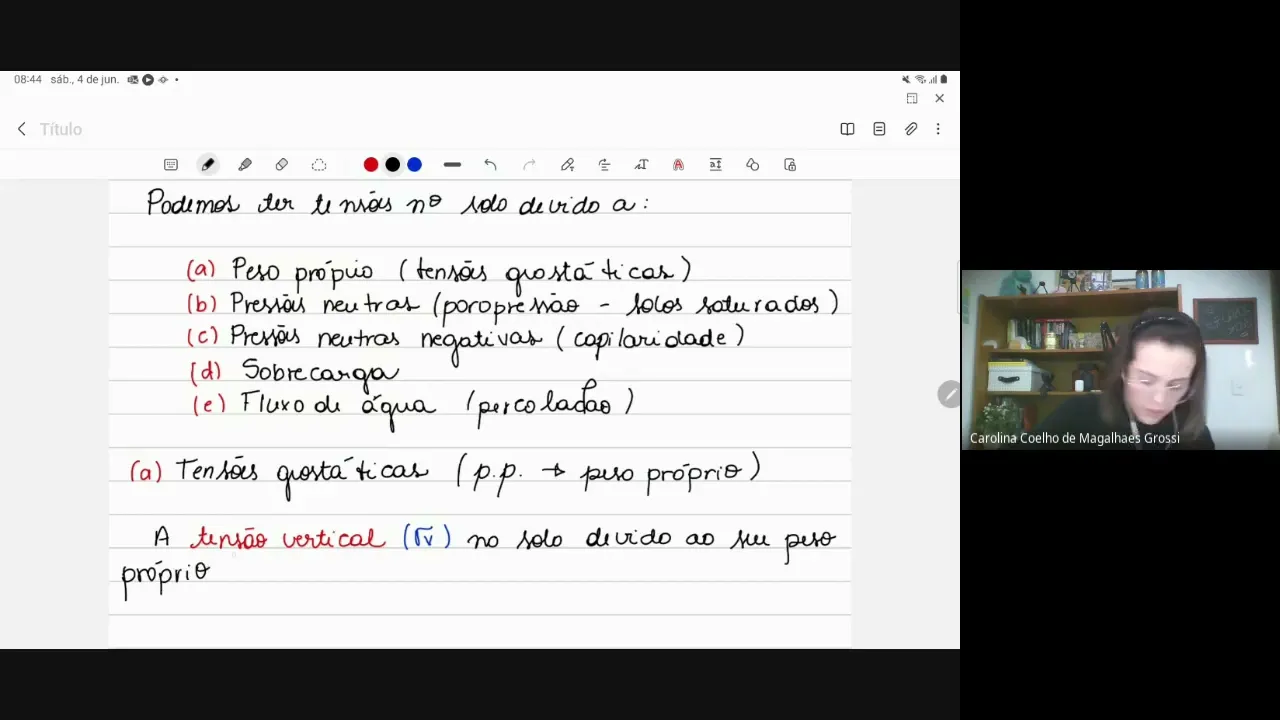 08:44 sáb., 4 de jun.
Título
Podemos ter tensões no solo devido a:
(a) Peso próprio (tensões geostáticas)
(b) Pressões neutras (poropressão - solos saturados)
(c) Pressões neutras negativas (capilaridade)
(d) Sobrecarga
(e) Fluxo de água (percolação)
(a) Tensões geostáticas (p.p. → peso próprio)
A tensão vertical (σv) no solo devido ao seu peso
próprio
Carolina Coelho de Magalhaes Grossi